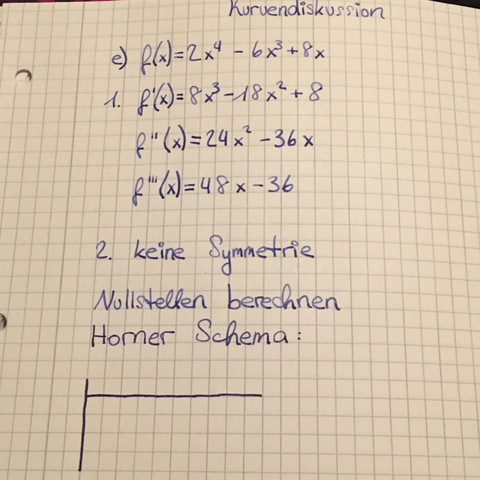 Kurvendiskussion
e) f(x)=2x⁴ - 6x³+8x
1. f'(x)=8x³-18x²+8
f''(x)=24x²-36x
f'''(x)=48x-36
2. keine Symmetrie
Nullstellen berechnen
Horner Schema: